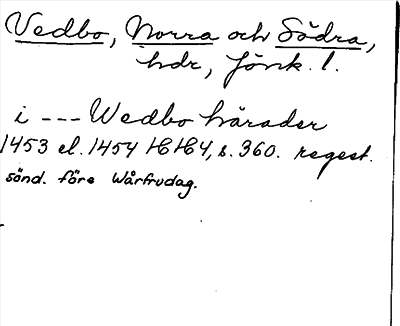 Vedbo, Norra och Södra,
hdr, Jönk. l.
i --- Wedbo härader
1453 el. 1454 HH4, s. 360. regest.
sönd. före Wårfrudag.